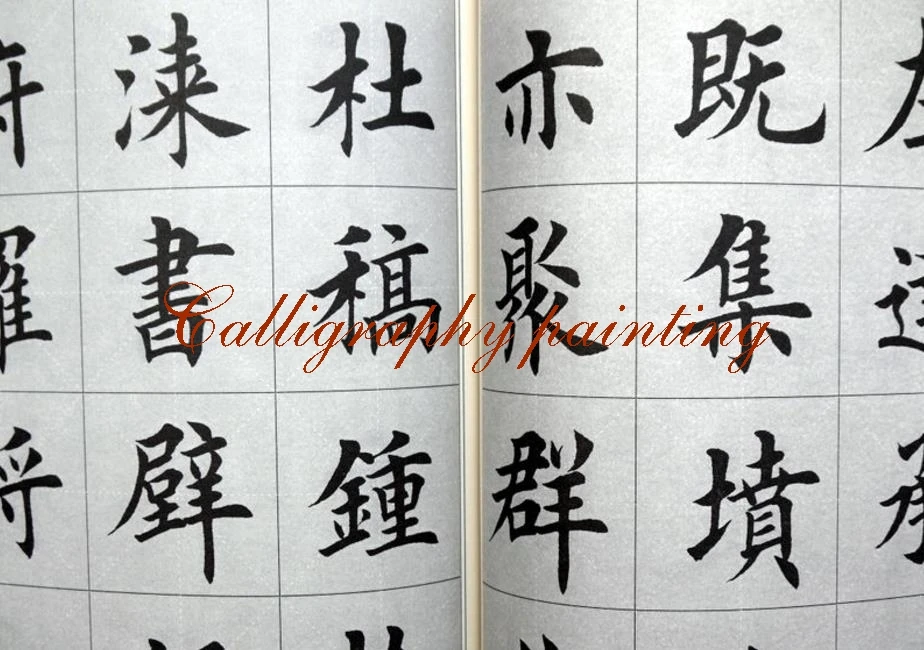 既集墳
亦聚群
杜稿鍾
漆書壁
Calligraphy painting